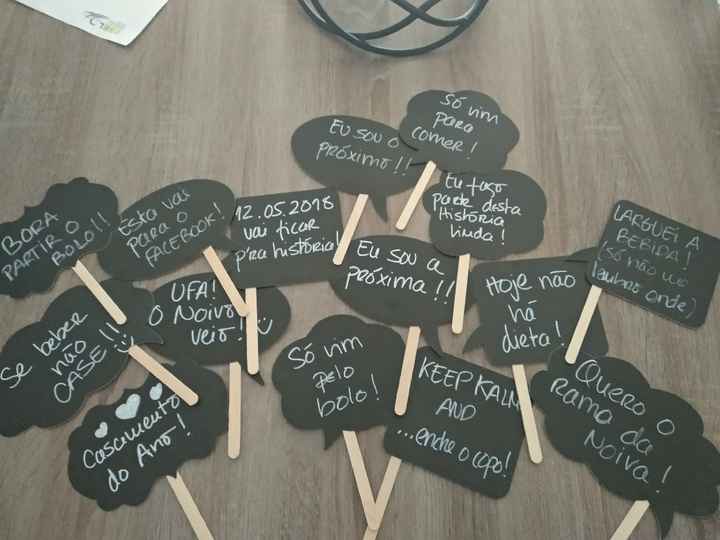 Só vim
para
comer!
Eu sou o
próximo!!
Eu faço
parte desta
História
Linda!
BORA
PARTIR O
BOLO!!
Esta vai
para o
FACEBOOK!
12.05.2018
vai ficar
p'ra história!
Eu sou a
próxima!!
LARGUEI A
BEBIDA!
(só não me
lembro onde)
UFA!
O Noivo
veio!
Hoje não
há
dieta!
Se beber
não
CASE!!
Só vim
pelo
bolo!
KEEP KALM
AND
...enche o copo!
Quero o
Ramo da
Noiva!
Casamento
do Ano!